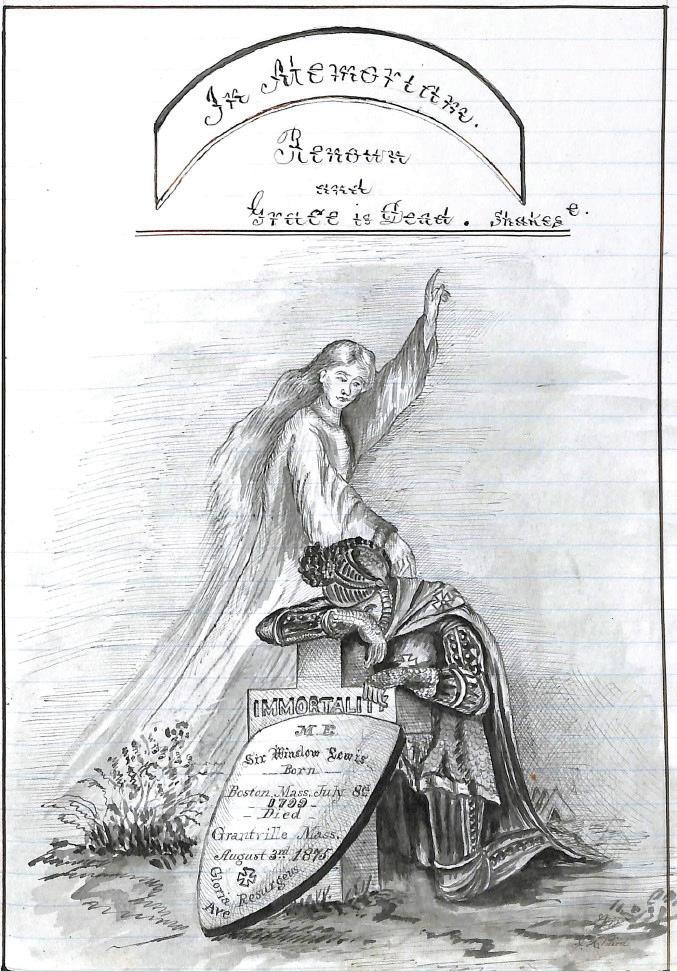 In Memoriam.
Renown
and
Grace is Dead. Shakes.e
IMMORTALI
M.E.
Sir Winslow Lewis
Born
Boston, Mass. July 8th
1799
Died
Grantville Mass.
August 3rd 1875
Gloria
Ave Resurgens